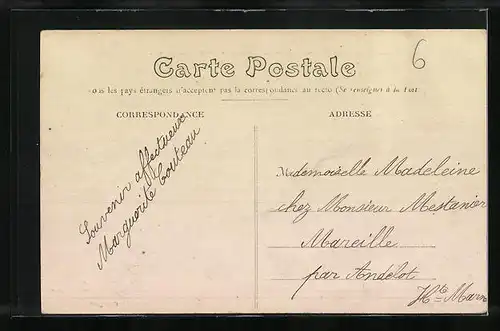 6
Carte Postale
ous les pays étrangers n'acceptent pas la correspondance au recto (Se renseigner à la Post
CORRESPONDANCE
ADRESSE
Souvenir affectueux
Marguerite Couteau
Mademoiselle Madeleine
chez Monsieur Mestanier
Mareille
par Andelot
Hte Marn